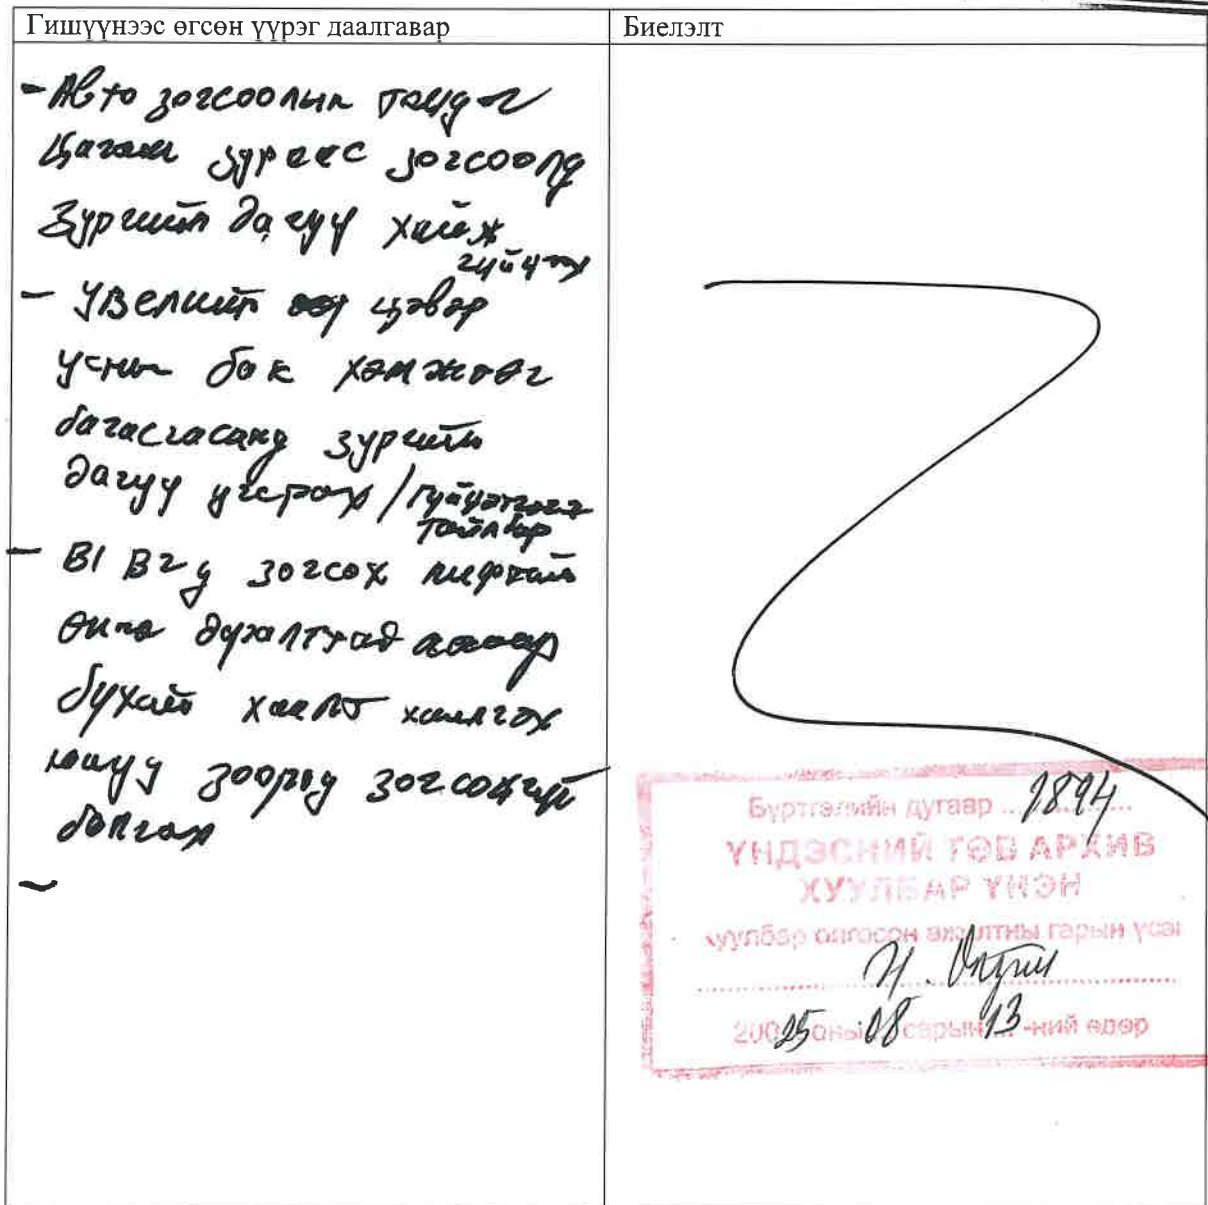 Гишүүнээс өгсөн үүрэг даалгавар
Биелэлт
- Авто зогсоолын
Цагаан зураас зогсоолд
Зургийн дагуу хийж
гүйцээх
- Увелийн цэвэр
усны бак хэмжээг
багасгасанд зургийн
дагуу угсрах /гүйцэтгэгч
тайлбар
- В1 В2 д зогсох лифтний
өмнө
бүхий хаалт хаалгах
зоорьд зогсохгүй
болгох
-
Бүртгэлийн дугаар ... 1894 ...
ҮНДЭСНИЙ ТӨВ АРХИВ
ХУУЛБАР ҮНЭН
хуулбар олгосон ажилтны гарын үсэг
2025 оны 08 сарын 13 -ний өдөр